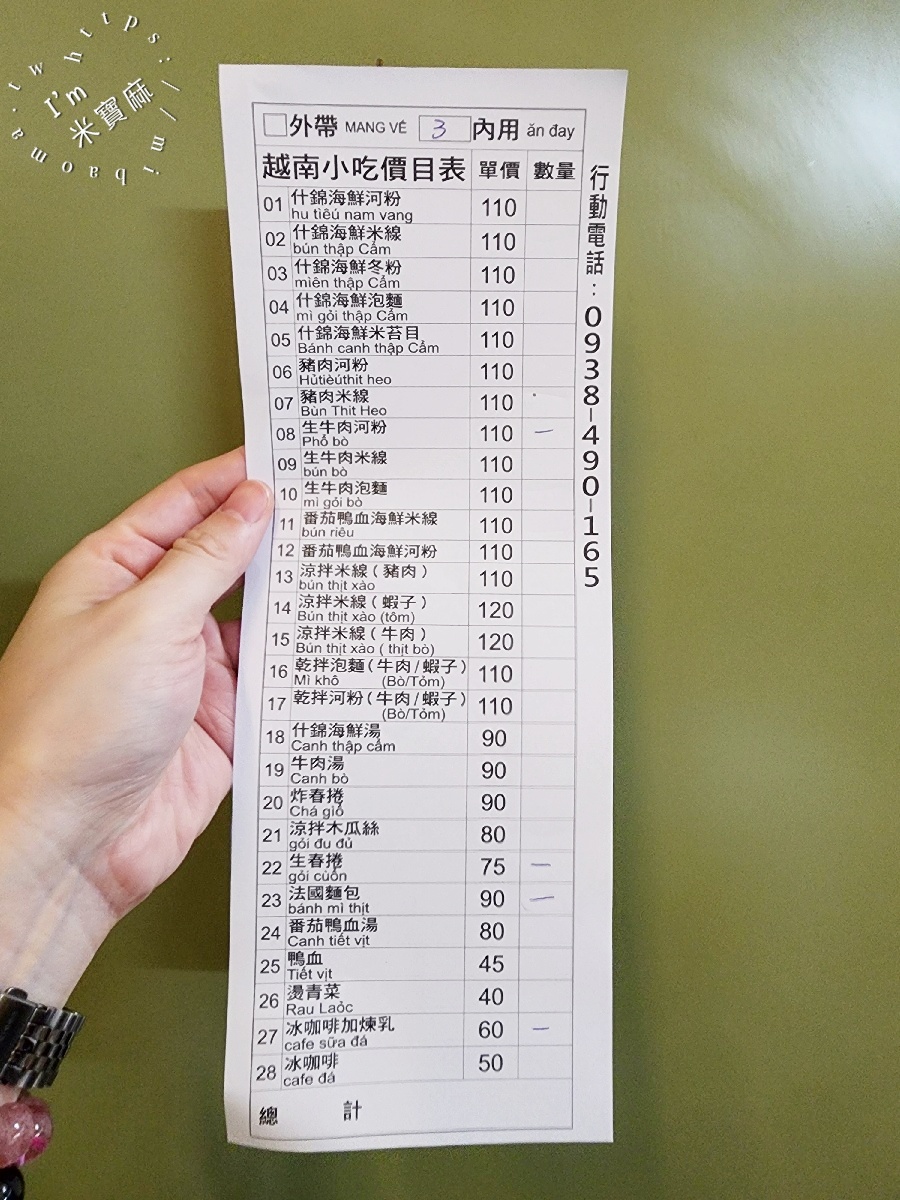 https://mibaoma.tw
I'm
米寶麻
外帶 MANG VẺ 3 內用 ăn đay
越南小吃價目表 單價 數量
01 什錦海鮮河粉 110
hu tiêú nam vang
02 什錦海鮮米線 110
bún thập Cẩm
03 什錦海鮮冬粉 110
mìên thập Cẩm
04 什錦海鮮泡麵 110
mì gỏi thập Cẩm
05 什錦海鮮米苔目 110
Bánh canh thập Cẩm
06 豬肉河粉 110
Hủtièúthit heo
07 豬肉米線 110
Bùn Thit Heo
08 生牛肉河粉 110 一
Phổ bò
09 生牛肉米線 110
bún bò
10 生牛肉泡麵 110
mì gỏi bò
11 番茄鴨血海鮮米線 110
bún riêu
12 番茄鴨血海鮮河粉 110
13 涼拌米線(豬肉) 110
bún thịt xào
14 涼拌米線(蝦子) 120
Bún thịt xào (tôm)
15 涼拌米線(牛肉) 120
Bún thịt xào ( thịt bò)
16 乾拌泡麵(牛肉/蝦子) 110
Mì khô (Bò/Tỏm)
17 乾拌河粉(牛肉/蝦子) 110
(Bò/Tỏm)
18 什錦海鮮湯 90
Canh thập cẩm
19 牛肉湯 90
Canh bò
20 炸春捲 90
Chá giổ
21 涼拌木瓜絲 80
gỏi đu đủ
22 生春捲 75 一
gỏi cùốn
23 法國麵包 90 一
bánh mì thịt
24 番茄鴨血湯 80
Canh tiết vịt
25 鴨血 45
Tiết vịt
26 燙青菜 40
Rau Laỏc
27 冰咖啡加煉乳 60 一
cafe sữa đá
28 冰咖啡 50
cafe đá
總計
行動電話：0938-490-165